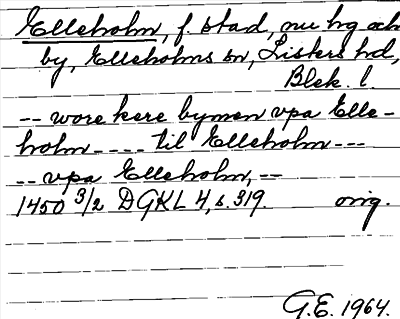 Elleholm, f. stad, nu hg och
by, Elleholms sn, Listers hd,
Blek. l.
-- wore kere bymen vpa Elle-
holm ---- til Elleholm ---
-- vpa Elleholm, --
1450 3/2 DGKL 4, s. 319. orig.
G.E. 1964.